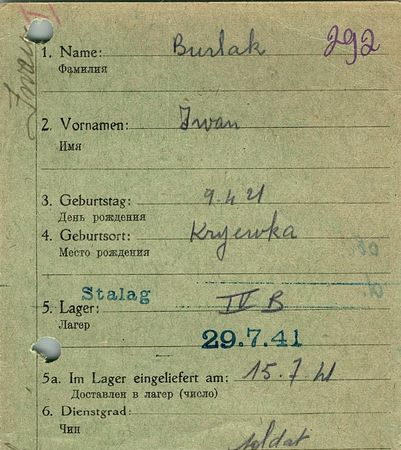 Iwan
1. Name: Burlak 292
Фамилия
2. Vornamen: Iwan
Имя
3. Geburtstag: 9.4 21
День рождения
4. Geburtsort: Kryewka
Место рождения
Stalag
5. Lager: IV B
Лагер
29.7.41
5a. Im Lager eingeliefert am: 15.7 41
Доставлен в лагер (число)
6. Dienstgrad:
Чин
soldat